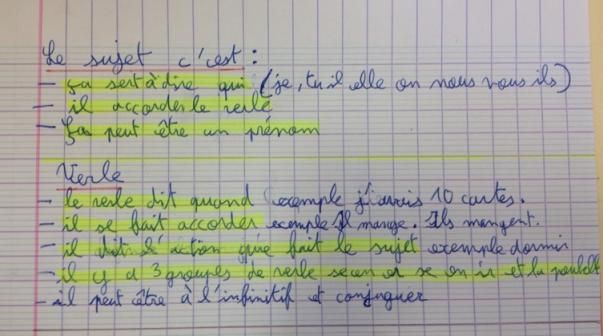 Le sujet c'est :
- ça sert à dire qui (je, tu il elle on nous vous ils)
- il accorder le verbe
- Ça peut être un prénom
Verbe
- le verbe dit quand exemple j'avais 10 cartes.
- il se fait accorder exemple Il mange. Ils mangent.
- il dit l'action que fait le sujet exemple dormir
- il y a 3 groupes de verbe en er en ir et la poubelle
- il peut être à l'infinitif et conjuguer